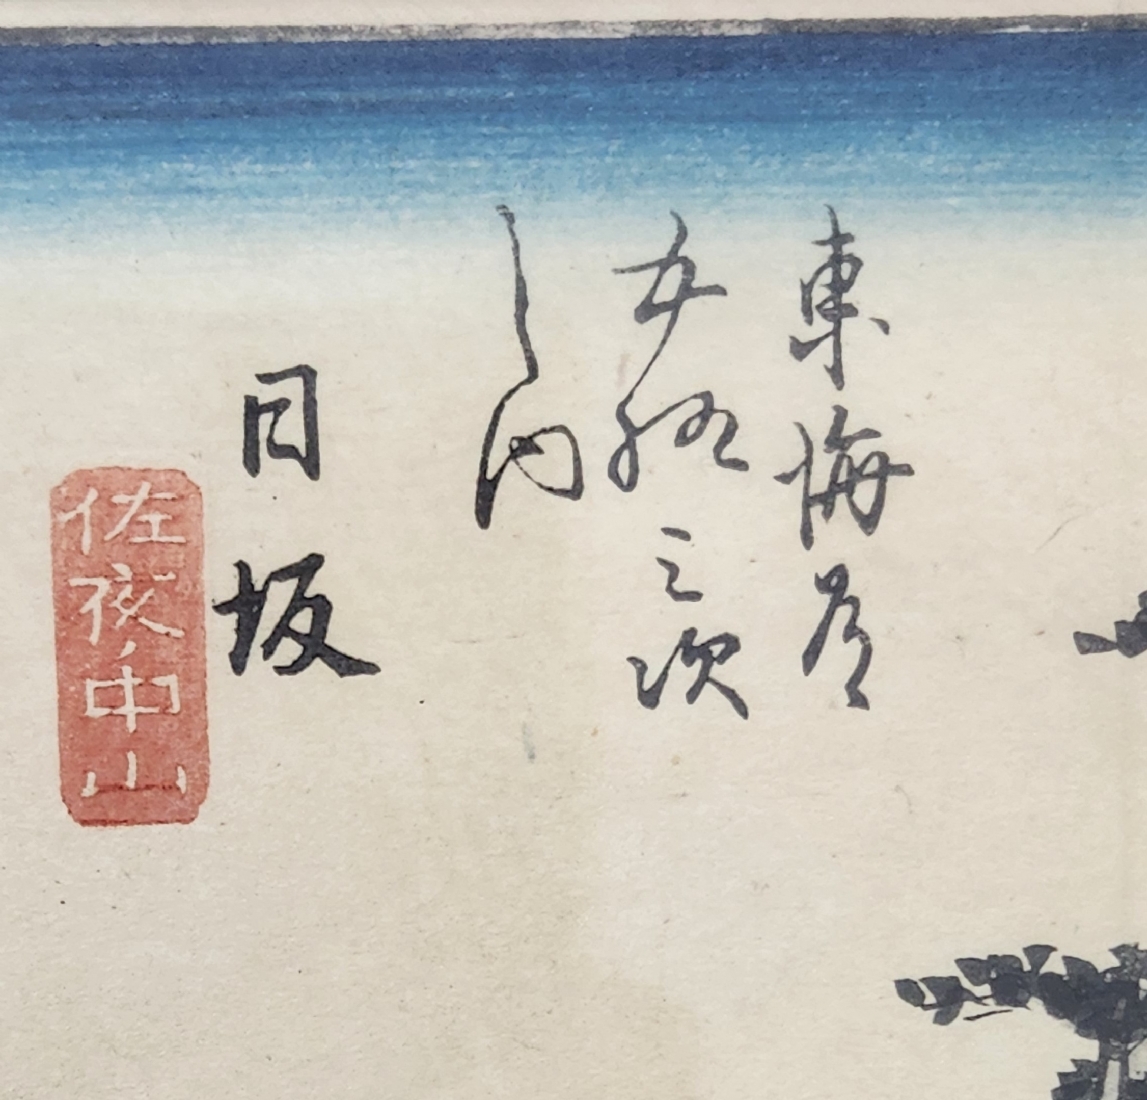 東海道
五拾三次
之内
日坂
佐夜ノ中山